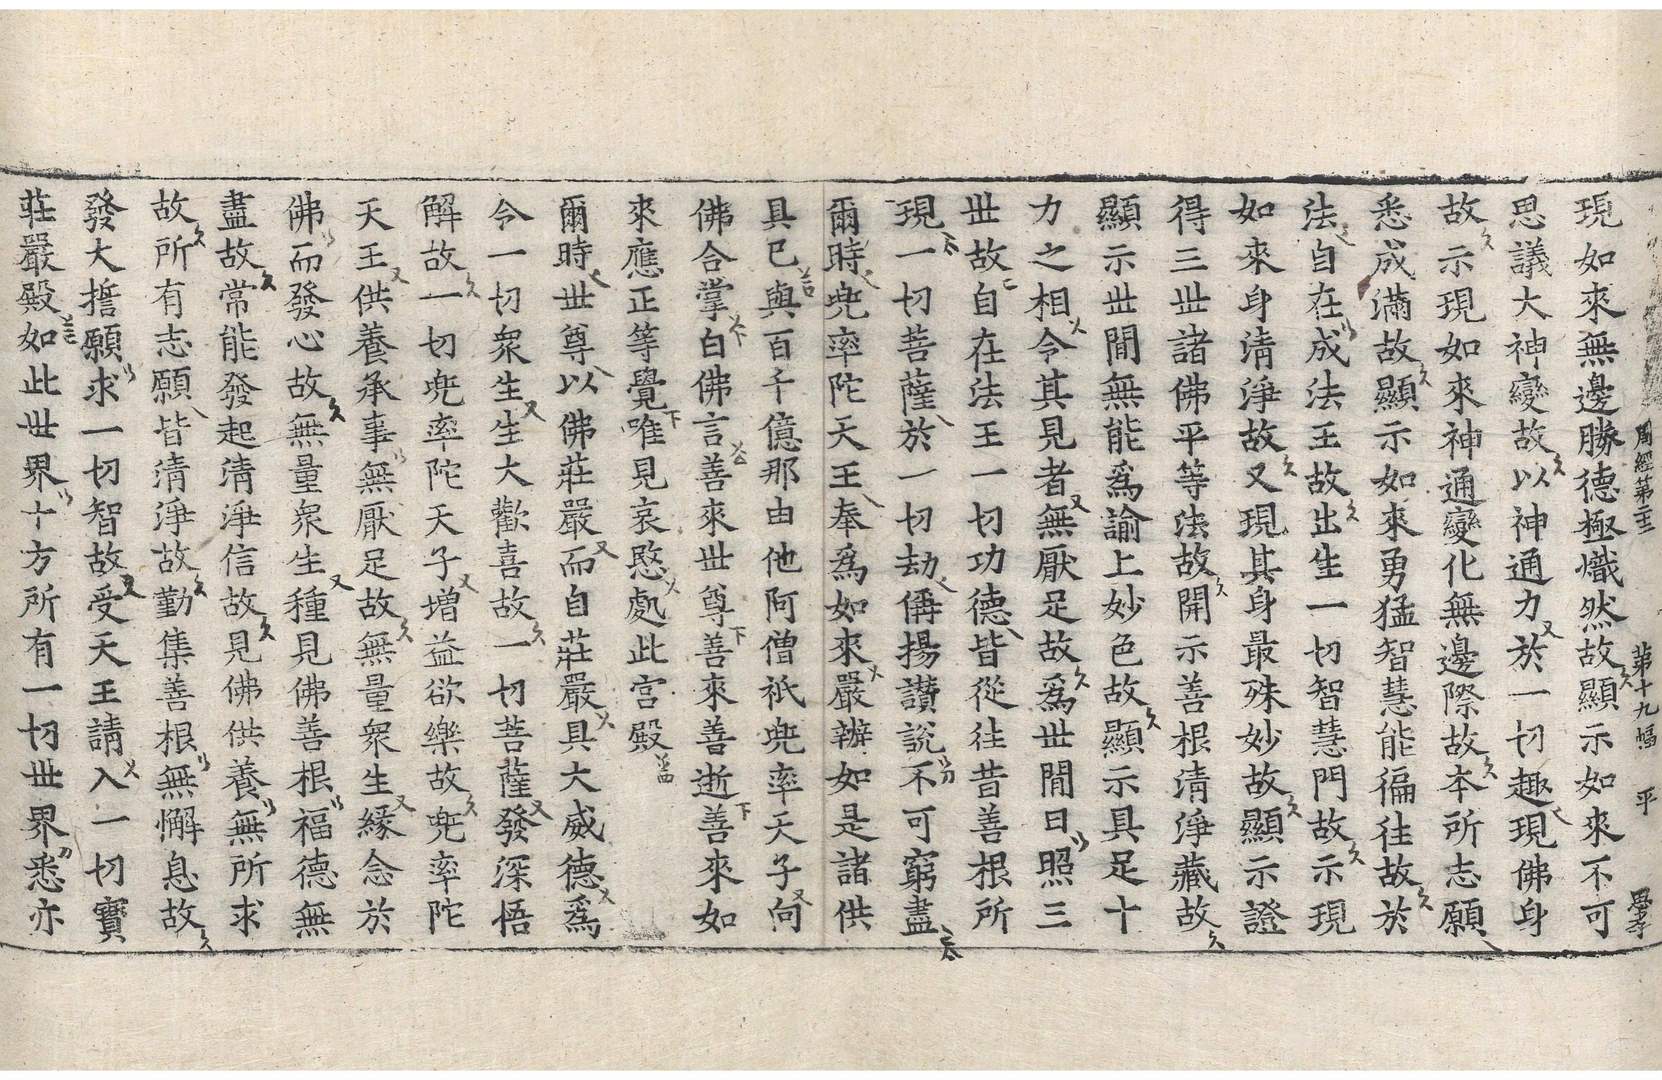 周經第二十三 第十九幅 平
現如來無邊勝德極熾然故顯示如來不可
思議大神變故以神通力於一切趣現佛身
故示現如來神通變化無邊際故本所志願
悉成滿故顯示如來勇猛智慧能徧往故於
法自在成法王故出生一切智慧門故示現
如來身清淨故又現其身最殊妙故顯示證
得三世諸佛平等法故開示善根清淨藏故
顯示世間無能爲諭上妙色故顯示具足十
力之相令其見者無厭足故爲世間日照三
世故自在法王一切功德皆從往昔善根所
現一切菩薩於一切劫偁揚讃說不可窮盡
爾時兜率陀天王奉爲如來嚴辦如是諸供
具已與百千億那由他阿僧祇兜率天子向
佛合掌白佛言善來世尊善來善逝善來如
來應正等覺唯見哀愍處此宮殿
爾時世尊以佛莊嚴而自莊嚴具大威德爲
令一切衆生生大歡喜故一切菩薩發深悟
解故一切兜率陀天子增益欲樂故兜率陀
天王供養承事無厭足故無量衆生緣念於
佛而發心故無量衆生種見佛善根福德無
盡故常能發起清淨信故見佛供養無所求
故所有志願皆清淨故勤集善根無懈息故
發大誓願求一切智故受天王請入一切寶
莊嚴殿如此世界十方所有一切世界悉亦